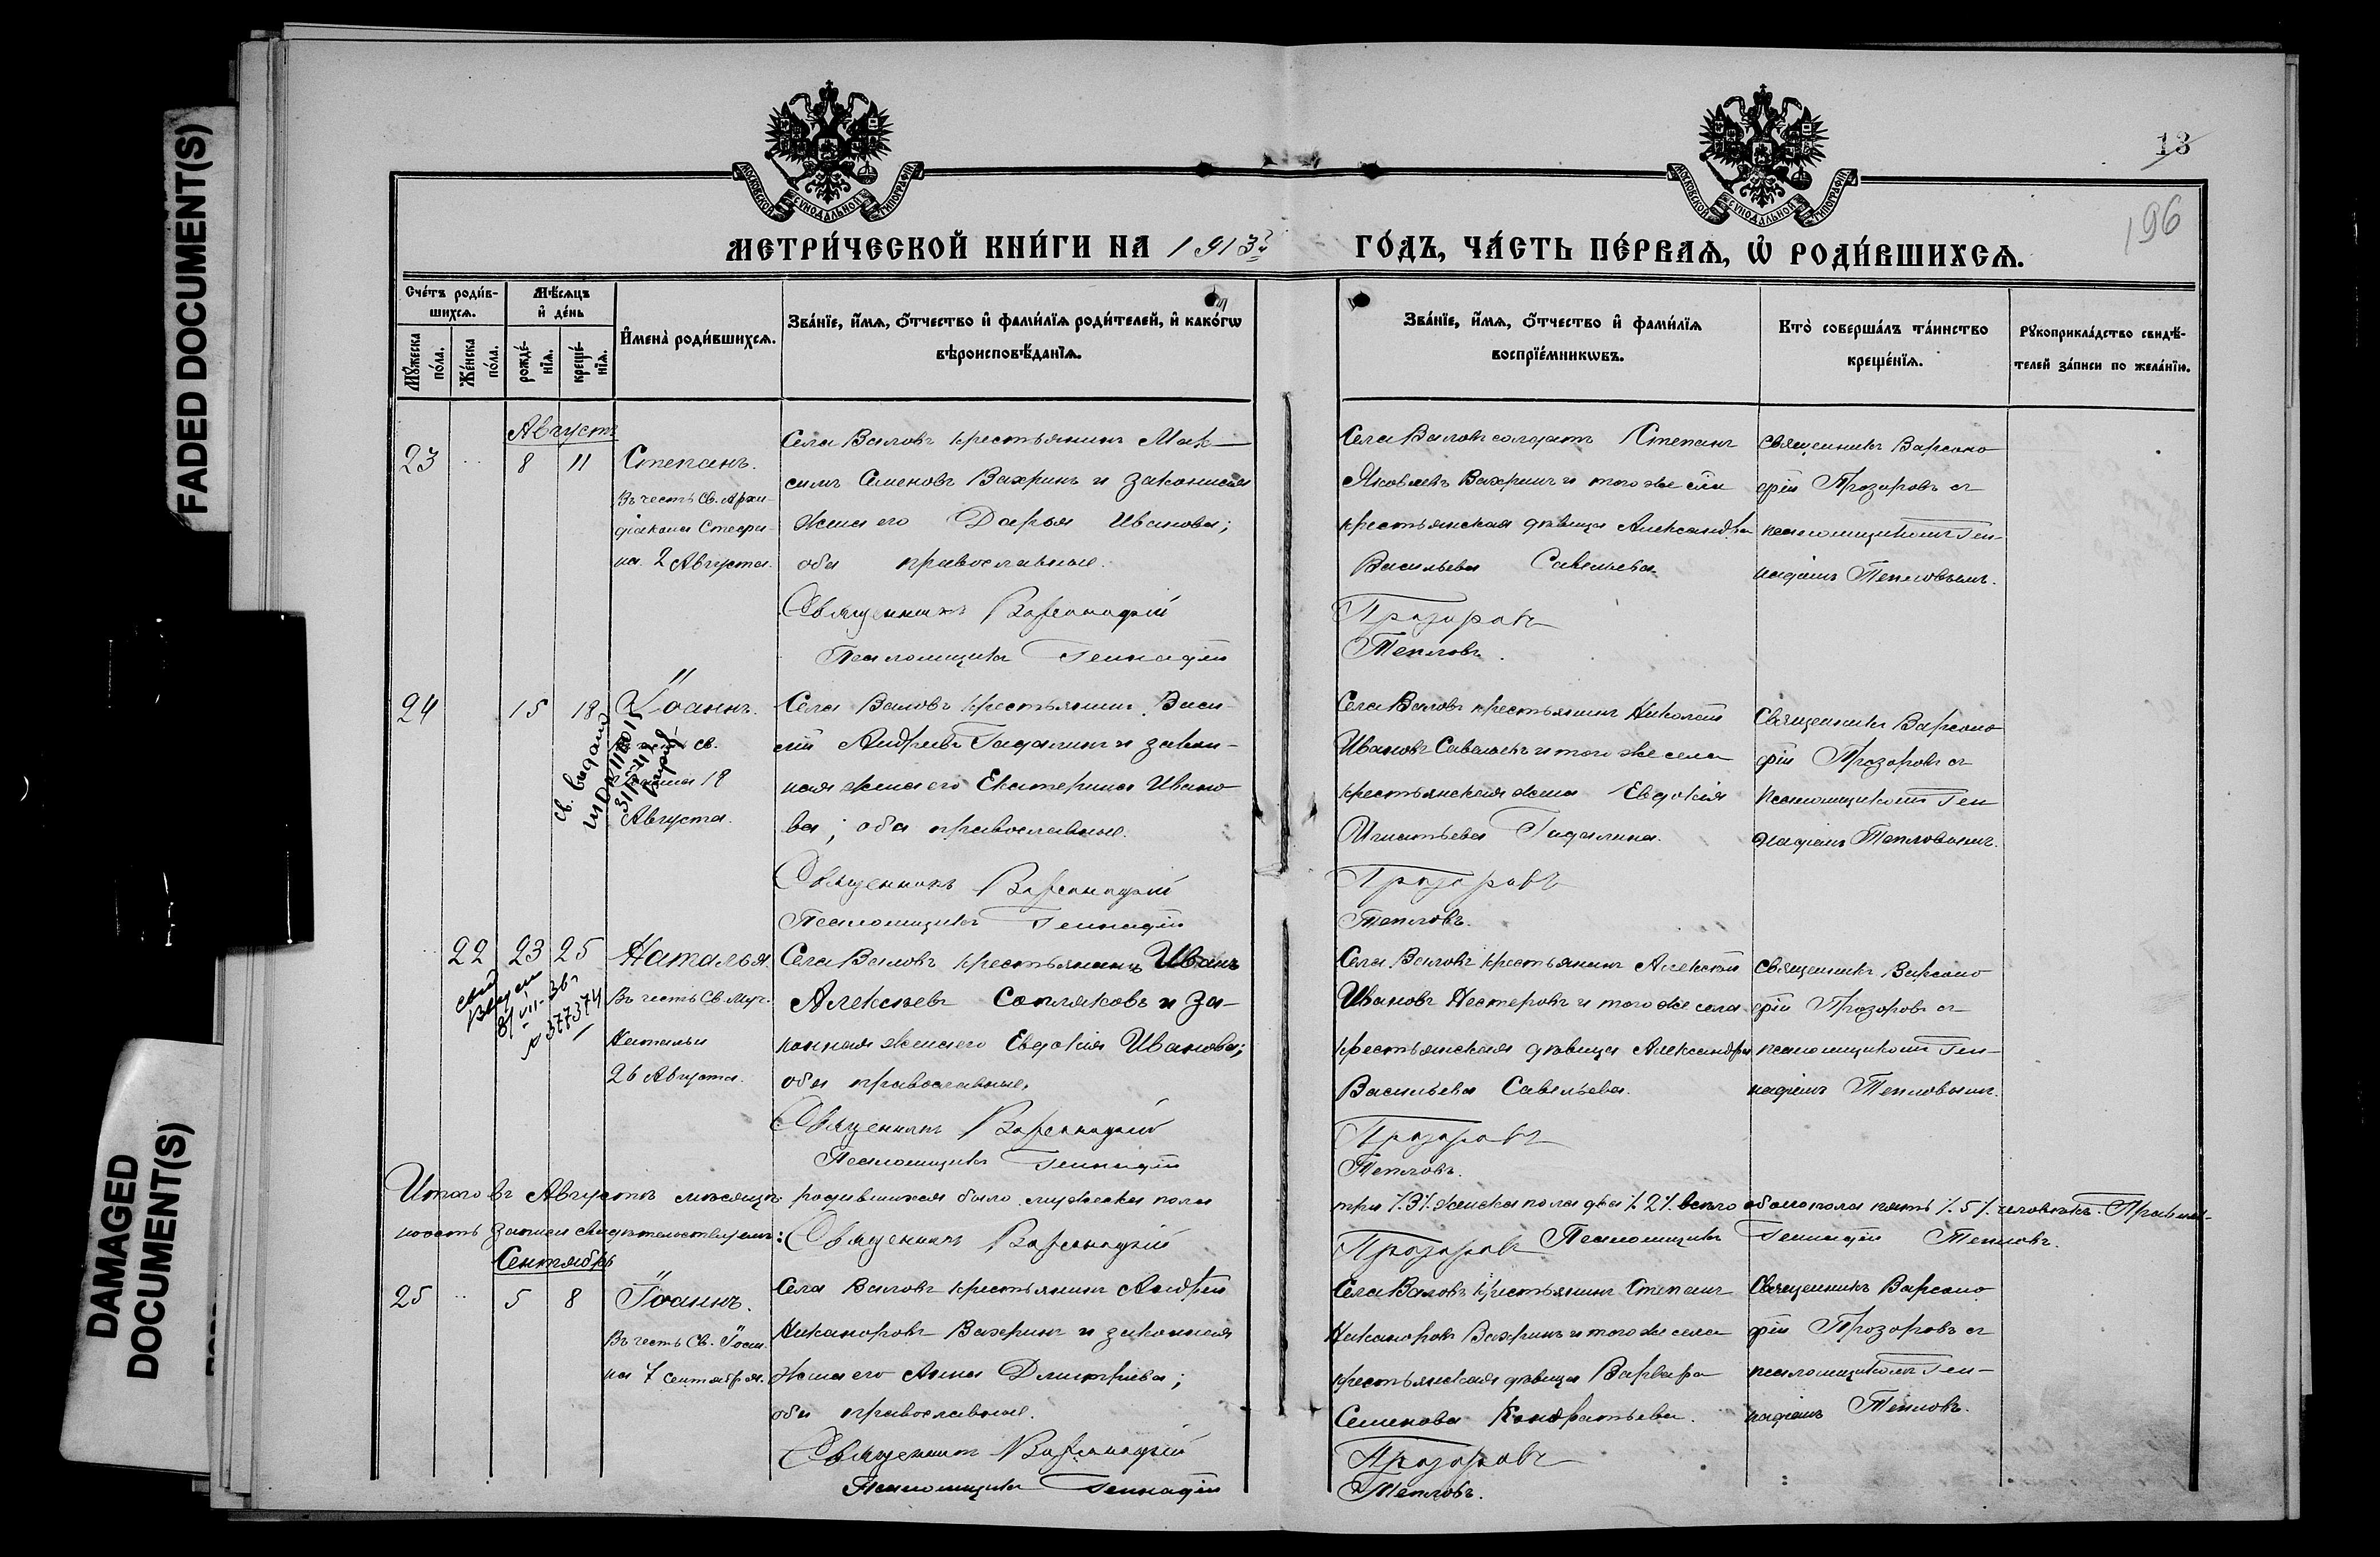 FADED DOCUMENT(S)
DAMAGED DOCUMENT(S)
МОСКОВСКОЙ СѴНОДАЛЬНОЙ ТИПОГРАФІИ
МОСКОВСКОЙ СѴНОДАЛЬНОЙ ТИПОГРАФІИ
13
196
МЕТРИ́ЧЕСКОЙ КНИ́ГИ НА 1913й ГО́ДЪ, ЧА́СТЬ ПЕ́РВАѦ, Ѡ҆ РОДИ́ВШИХСѦ.
Сче́тъ роди́в-
шихсѧ.
Мѣ́сѧцъ
и҆ де́нь
Мꙋ́жеска по́ла.
Же́нска по́ла.
рожде́-
нїѧ.
креще́-
нїѧ.
И҆мена̀ роди́вшихсѧ.
Зва́нїе, и҆́мѧ, ѻ҆́тчество и҆ фами́лїѧ роди́телей, и҆ како́гѡ
вѣроисповѣ́данїѧ.
Зва́нїе, и҆́мѧ, ѻ҆́тчество и҆ фами́лїѧ
воспрїе́мникѡвъ.
Кто̀ соверша́лъ та́инство
креще́нїѧ.
Рꙋкоприкла́дство свидѣ́-
телей за́писи по жела́нїю.
Августъ
23
8
11
Степанъ.
Въ честь Св. Архи-
діакона Стефа-
на 2 Августа.
Села Валовъ крестьянинъ Мак-
симъ Семеновъ Вахринъ и законная
жена его Дарья Иванова;
оба православные.
Священникъ Варсанофій
Псаломщикъ Геннадій
Села Валовъ солдатъ Степанъ
Яковлевъ Вахринъ и того же села
крестьянская дѣвица Александра
Васильева Савельева
Прозоровъ
Тепловъ.
Священникъ Варсоно
фій Прозоровъ съ
псаломщикомъ Ген-
надіемъ Тепловымъ.
24
15
18
Іоаннъ.
св.
Іоанна 18
Августа.
св. выдано
Села Валовъ крестьянинъ Васи-
лій Андреевъ Гадалинъ и закон-
ная жена его Екатерина Ивано-
ва; оба православные.
Священникъ Варсанофій
Псаломщикъ Геннадій
Села Валовъ крестьянинъ Николай
Ивановъ Савельевъ и того же села
крестьянская жена Евдокія
Игнатьева Гадалина.
Прозоровъ
Тепловъ.
Священникъ Варсоно
фій Прозоровъ съ
Псаломщикомъ Ген
надіемъ Тепловымъ.
22
23
25
Наталья.
Въ честь Св. Муч.
Натальи
26 Августа.
8/VII-36г
№ 377374
Села Валовъ крестьянинъ Иванъ
Алексѣевъ Сопляковъ и за-
конная жена его Евдокія Иванова;
оба православные.
Священникъ Варсанофій
Псаломщикъ Геннадій
Села Валовъ крестьянинъ Алексѣй
Ивановъ Нестеровъ и того же села
крестьянская дѣвица Александра
Васильева Савельева.
Прозоровъ
Тепловъ.
Священникъ Варсоно
фій Прозоровъ съ
псаломщикомъ Ген-
надіемъ Тепловымъ.
Итого въ Августѣ мѣсяцѣ родившихся было мужеска пола
три /.3/. женска пола два /.2/. всего обоего пола пять /.5/. человѣкъ. Правиль-
ность записи свидѣтельствуемъ: Священникъ Варсанофій
Прозоровъ Псаломщикъ Геннадій Тепловъ.
Сентябрь
25
5
8
Іоаннъ.
Въ честь Св. Іоан-
на 7 сентября.
Села Валовъ крестьянинъ Андрей
Никаноровъ Вахринъ и законная
жена его Анна Дмитріева;
оба православные.
Священникъ Варсанофій
Псаломщикъ Геннадій
Села Валовъ крестьянинъ Степанъ
Никаноровъ Вахринъ и того же села
крестьянская дѣвица Варвара
Семенова Кондратьева.
Прозоровъ
Тепловъ.
Священникъ Варсоно
фій Прозоровъ съ
псаломщикомъ Ген-
надіемъ Тепловъ.